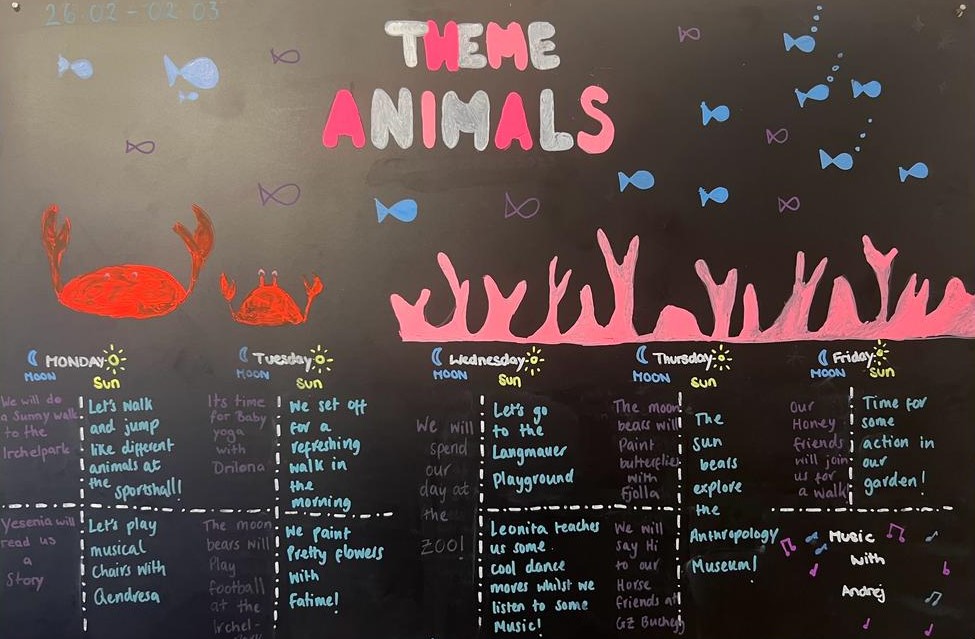 26.02 - 02.03
THEME
ANIMALS
MONDAY
MOON
SUN
We will do
a Sunny walk
to the
Irchelpark
Let's walk
and jump
like different
animals at
the
sportshall!
Yesenia will
read us
a
Story
Let's play
musical
Chairs with
Qendresa
Tuesday
MOON
SUN
Its time
for Baby
yoga
with
Drilona
We set off
for a
refreshing
walk in
the
morning
The moon
bears will
Play
football
at the
Irchel-
We paint
Pretty flowers
with
Fatime!
Wednesday
MOON
SUN
We will
spend
our
day at
the
ZOO!
Let's go
to the
Langmauer
Playground
Leonita teaches
us some
cool dance
moves whilst we
listen to some
Music!
Thursday
MOON
SUN
The moon
bears will
Paint
butterflies
with
Fjolla
We will
say Hi
to our
Horse
friends at
GZ Buchegg
The
sun
bears
explore
the
Anthropology
Museum!
Friday
MOON
SUN
Our
Honey
friends
will join
us for
a walk
Time for
some
action in
our
garden!
Music
with
Andrej